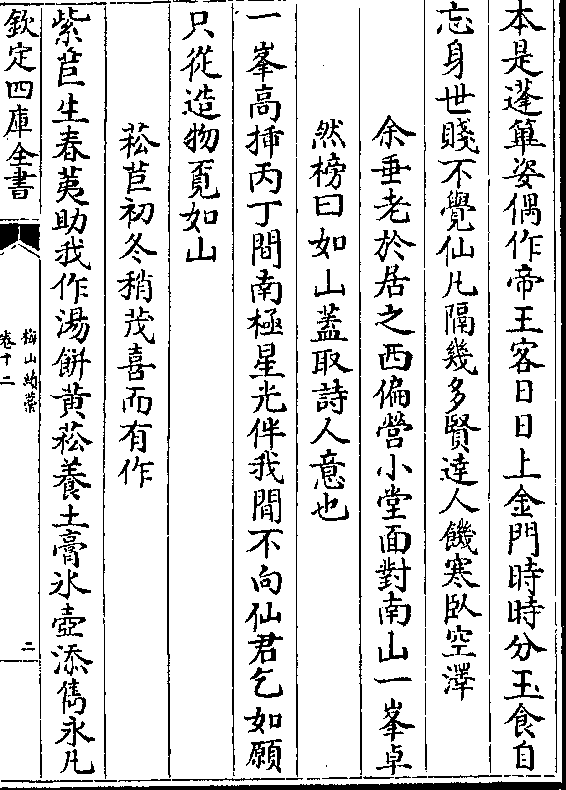 本是蓬蓽姿偶作帝王客日日上金門時時分玉食自
忘身世賤不覺仙凡隔幾多賢達人饑寒臥空澤
余垂老於居之西偏營小堂面對南山一峯卓
然榜曰如山蓋取詩人意也
一峯高揷丙丁間南極星光伴我閒不向仙君乞如願
只從造物覓如山
菘苣初冬稍茂喜而有作
紫苣生春荑助我作湯餅黃菘養土膏氷壺添雋永凡
欽定四庫全書
梅山續藁
卷十二
二